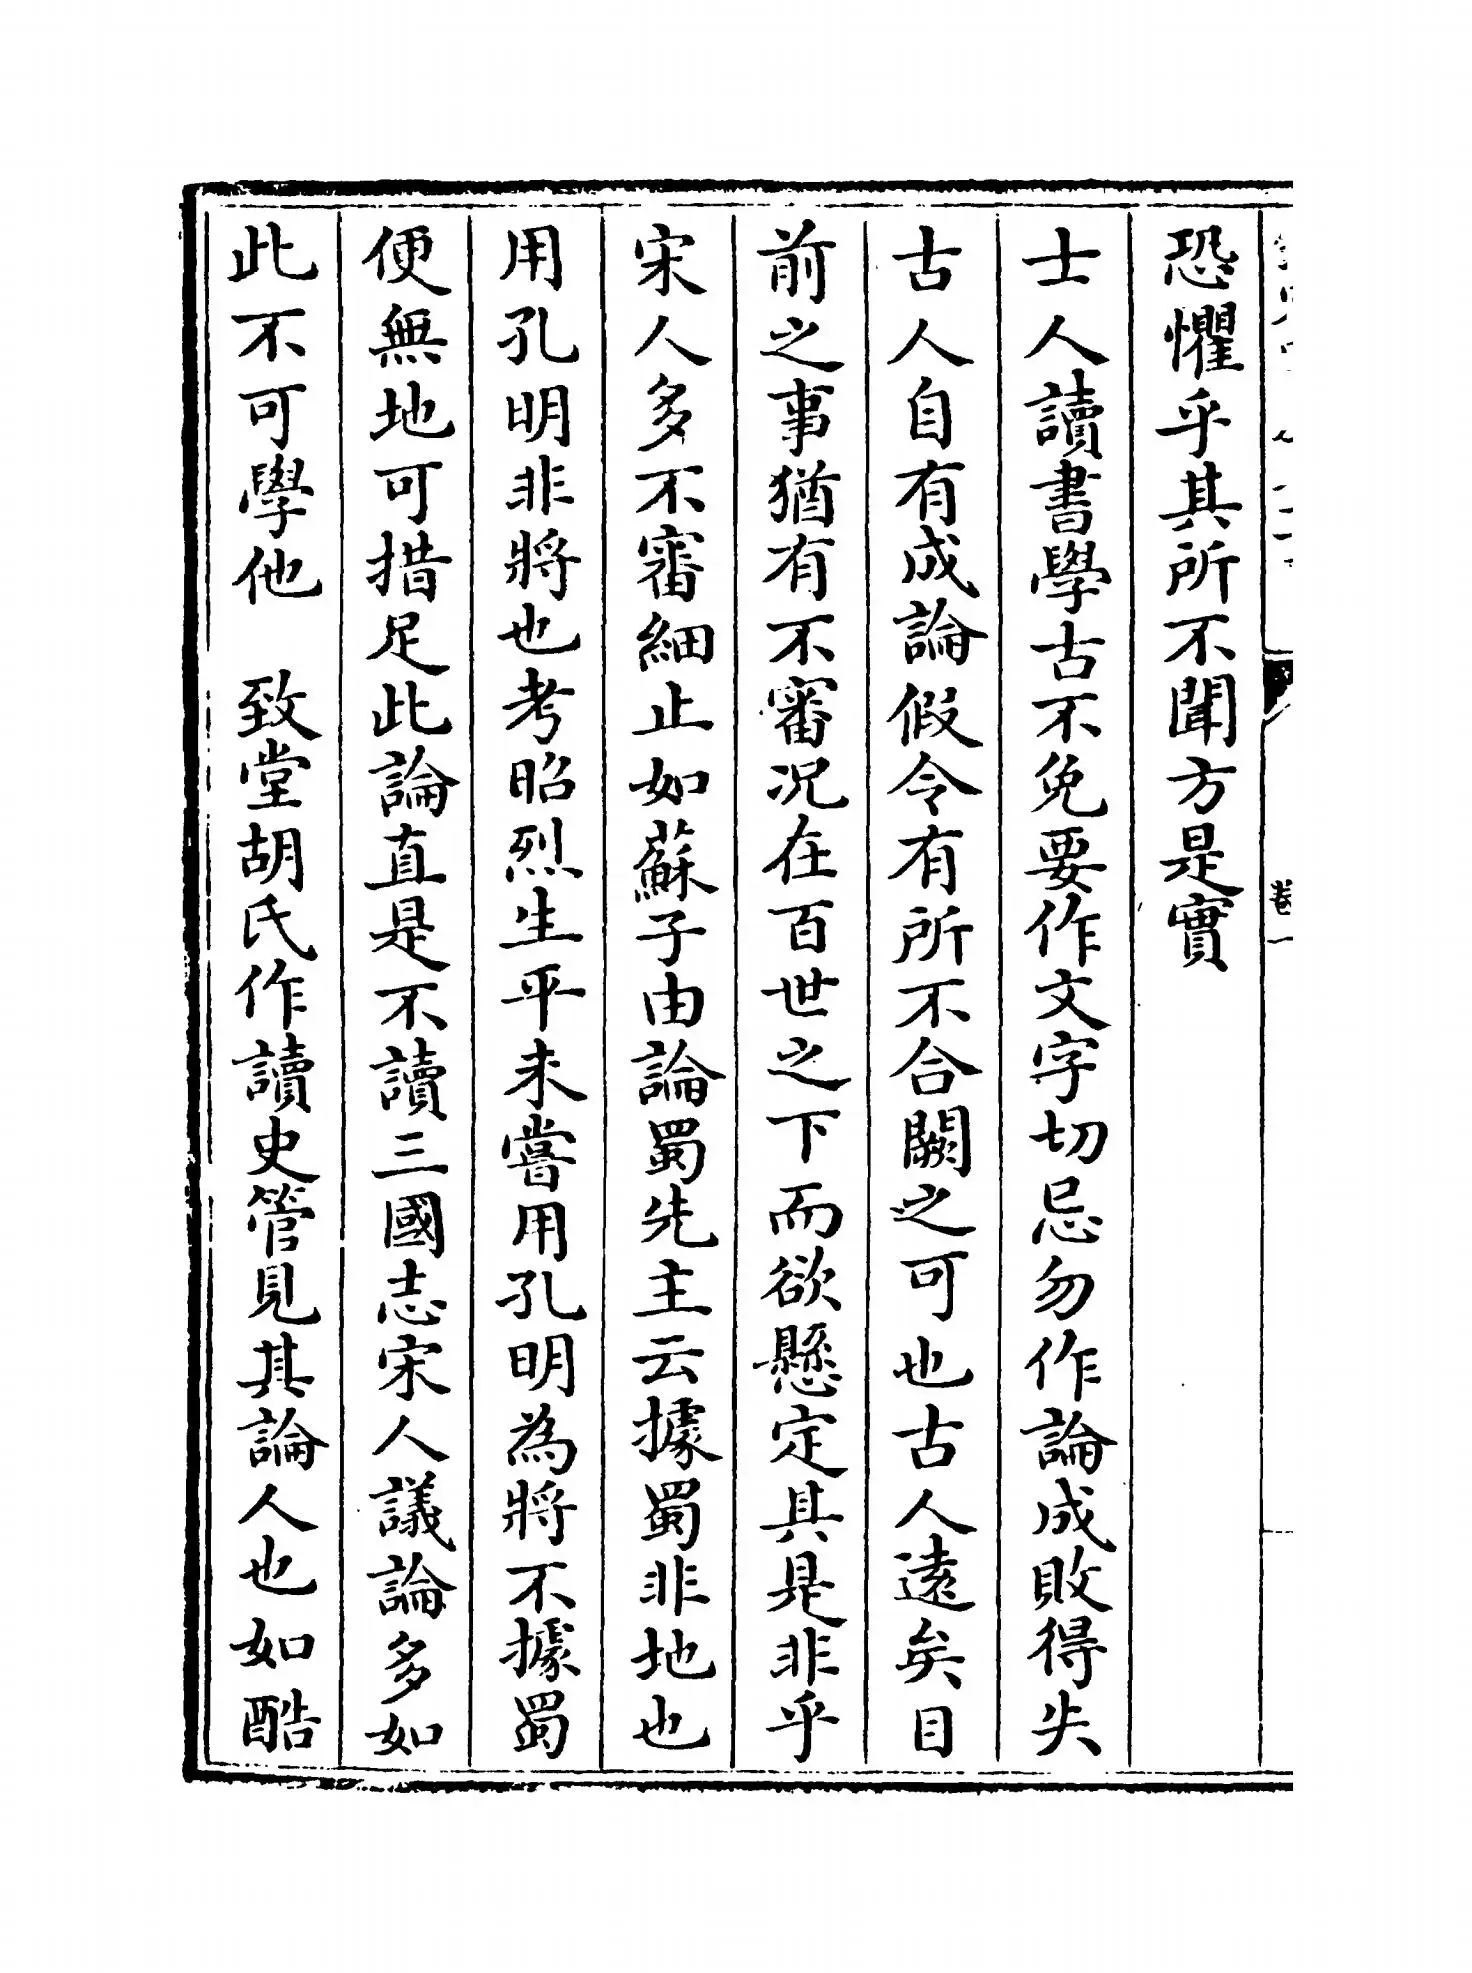 恐懼乎其所不聞方是實
士人讀書學古不免要作文字切忌勿作論成敗得失
古人自有成論假令有所不合闕之可也古人遠矣目
前之事猶有不審况在百世之下而欲懸定其是非乎
宋人多不審細止如蘇子由論蜀先主云據蜀非地也
用孔明非將也考昭烈生平未嘗用孔明為將不據蜀
便無地可措足此論直是不讀三國志宋人議論多如
此不可學他　致堂胡氏作讀史管見其論人也如酷
卷一